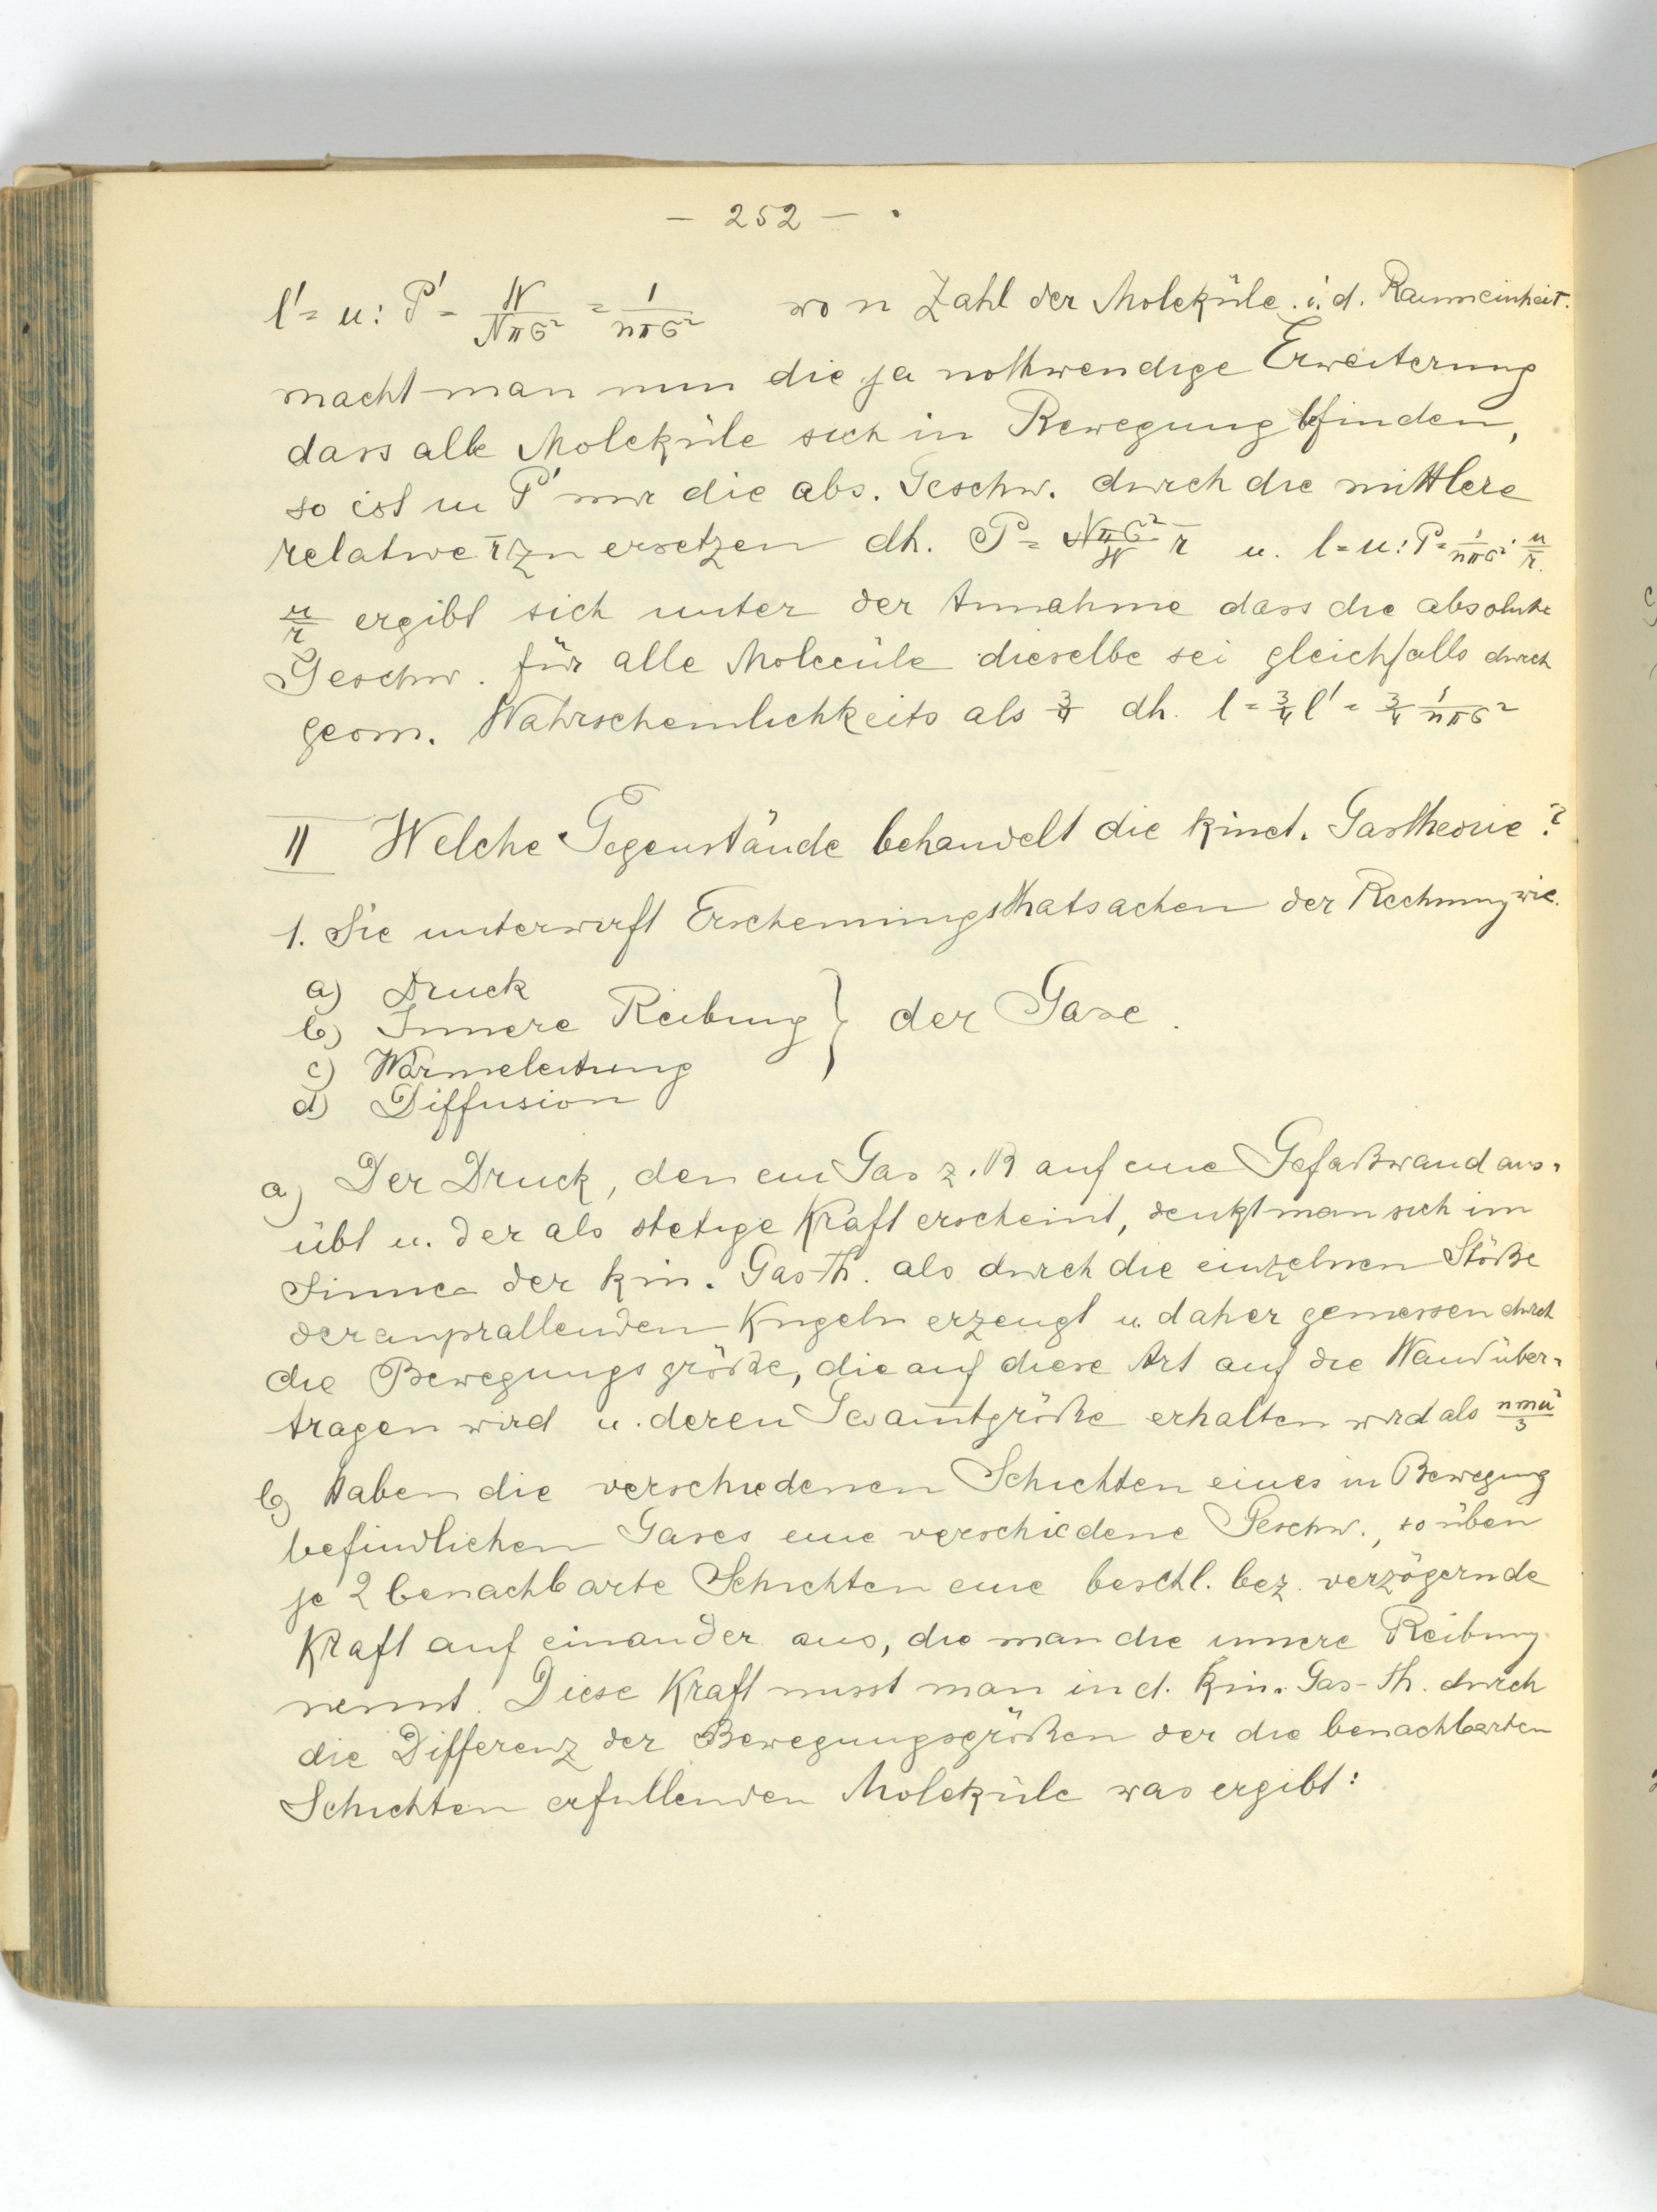 – 252 –
l' = u : P' = W/Nπσ² = 1/nπσ² wo n Zahl der Moleküle i. d. Raumeinheit.
macht man nun die ja nothwendige Erweiterung
dass alle Moleküle sich in Bewegung befinden,
so ist in P' nur die abs. Geschw. durch die mittlere
relative r̄ zu ersetzen dh. P = Nπσ²/W r̄ u. l = u : P = 1/nπσ² · u/r̄.
u/r̄ ergibt sich unter der Annahme dass die absolute
Geschw. für alle Molecüle dieselbe sei gleichfalls durch
geom. Wahrscheinlichkeits als 3/4 dh. l = 3/4 l' = 3/4 1/nπσ²
II Welche Gegenstände behandelt die kinet. Gastheorie?
1. Sie unterwirft Erscheinungsthatsachen der Rechnung wie.
a) Druck
b) Innere Reibung } der Gase.
c) Wärmeleitung
d) Diffusion
a) Der Druck, den ein Gas z. B auf eine Gefaßwand aus-
übt u. der als stetige Kraft erscheint, denkt man sich im
Sinne der kin. Gas-Th. als durch die einzelnen Stöße
der anprallenden Kugeln erzeugt u. daher gemessen durch
die Bewegungsgröße, die auf diese Art auf die Wand über-
tragen wird u. deren Gesam̅tgröße erhalten wird als nmu²/3
b) Haben die verschiedenen Schichten eines in Bewegung
befindlichen Gases eine verschiedene Geschw., so üben
je 2 benachbarte Schichten eine beschl. bez. verzögernde
Kraft auf einander aus, die man die innere Reibung
nennt. Diese Kraft misst man in d. kin. Gas-Th. durch
die Differenz der Bewegungsgrößen der die benachbarten
Schichten erfullenden Moleküle was ergibt: